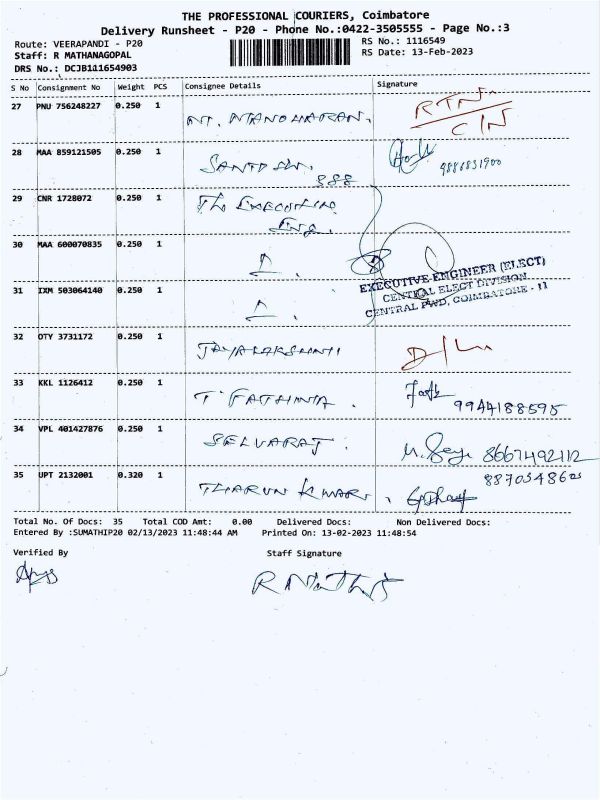 THE PROFESSIONAL COURIERS, Coimbatore
Delivery Runsheet - P20 - Phone No.:0422-3505555 - Page No.:3
Route: VEERAPANDI - P20
RS No.: 1116549
Staff: R MATHANAGOPAL
RS Date: 13-Feb-2023
DRS No.: DCJB111654903
S No Consignment No Weight PCS Consignee Details Signature
27 PNU 756248227 0.250 1 NT. MANOHARAN. RTN
C/N
28 MAA 859121505 0.250 1 SANTOSH.
888 9886831900
29 CNR 1728072 0.250 1 The EXECUTIVE
Eng.
30 MAA 600070835 0.250 1
EXECUTIVE ENGINEER (ELECT)
31 IXM 503064140 0.250 1
CENTRAL ELECT DIVISION
CENTRAL PWD, COIMBATORE - 11
32 OTY 3731172 0.250 1 JAYALAKSHMI D/L
33 KKL 1126412 0.250 1 T. FATHIMA. 9944188595
34 VPL 401427876 0.250 1 SELVARAJ. 8667492112
35 UPT 2132001 0.320 1 THARUN KUMAR. 
Total No. Of Docs: 35 Total COD Amt: 0.00 Delivered Docs: Non Delivered Docs:
Entered By :SUMATHIP20 02/13/2023 11:48:44 AM Printed On: 13-02-2023 11:48:54
Verified By Staff Signature